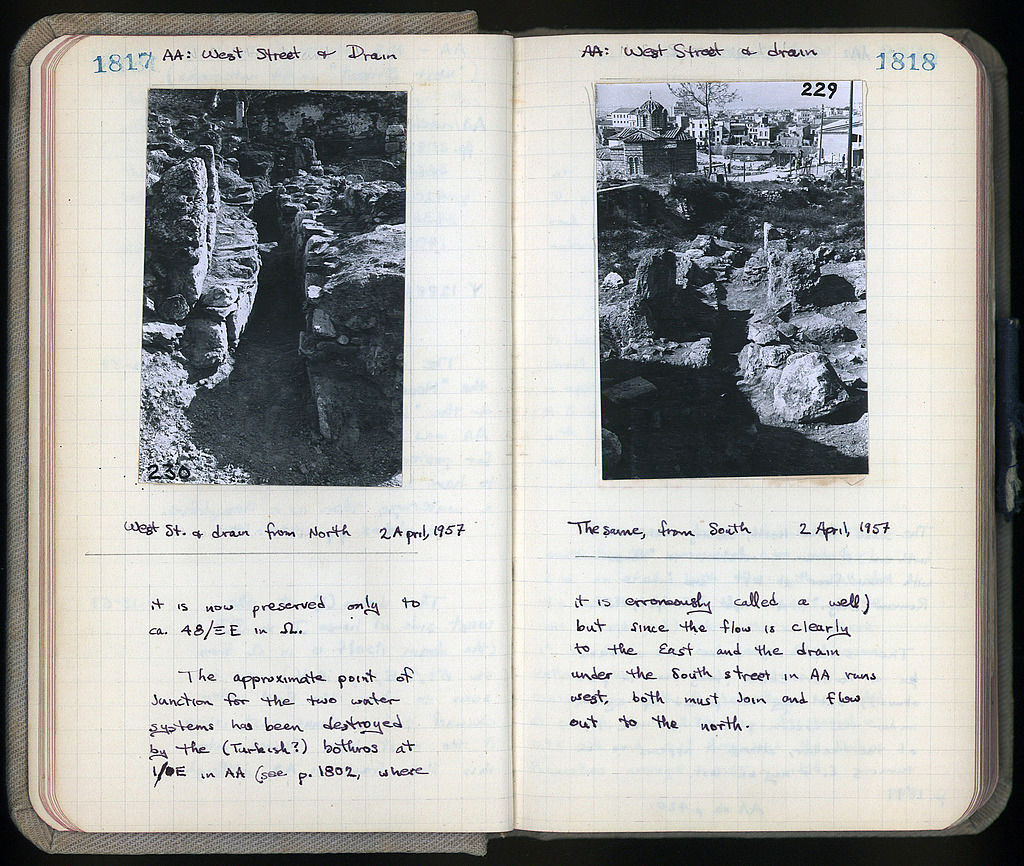 1817 AA: West Street & Drain
236
West St. & drain from North 2 April, 1957
it is now preserved only to
ca. 48/ΞE in Ω.
The approximate point of
junction for the two water
systems has been destroyed
by the (Turkish?) bothros at
in AA (see p. 1802, where
AA: West Street & drain 1818
229
The same, from South 2 April, 1957
it is erroneously called a well)
but since the flow is clearly
to the East and the drain
under the South street in AA runs
west, both must join and flow
out to the north.